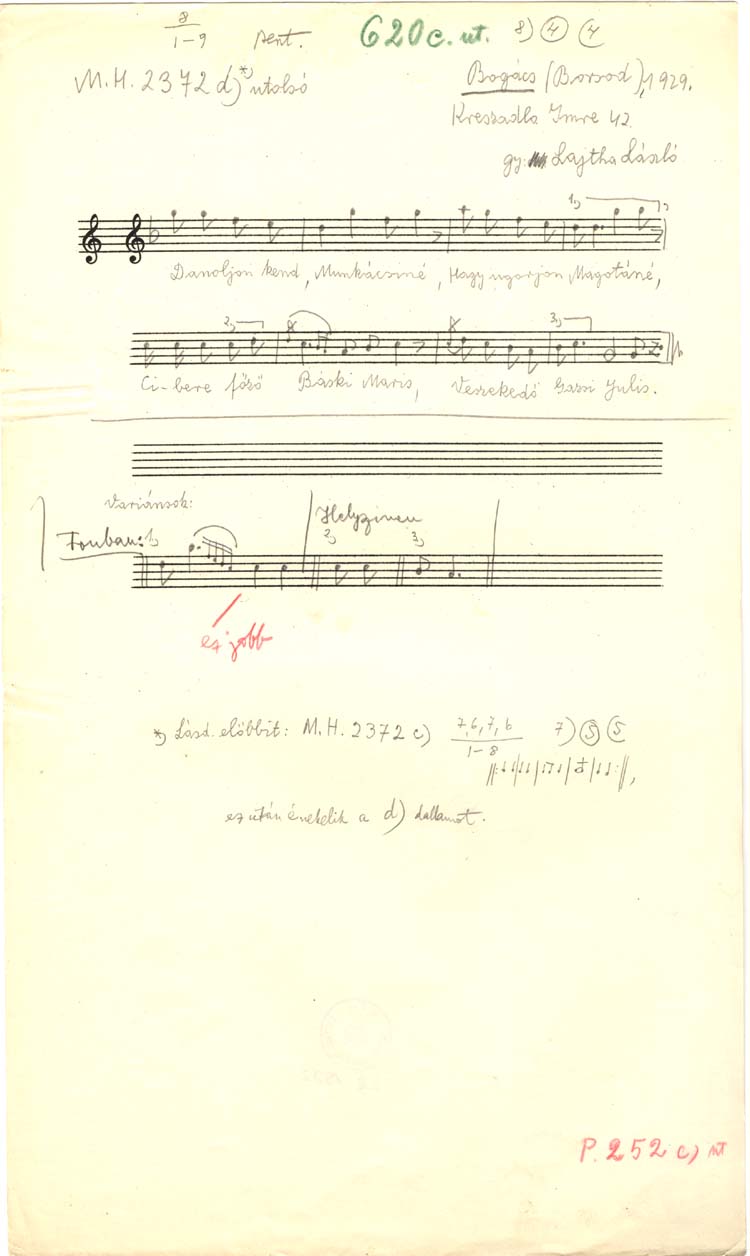 8
1-9 pent. 620c. ut. 8) 4 (4
M.H. 2372 d) *) utolsó
Bogács (Borsod), 1929.
Kreszadla Imre 42.
gy: Lajtha László
1)
Danoljon kend, Munkácsiné, Hagy ugorjon Magotáné,
2) 3)
Ci-bere főző Báski Maris, Veszekedő Gazsi Julis.
Variánsok:
Fonban: 1) Helyszinen 2) 3)
ez jobb
*) Lásd előbbit: M.H. 2372 c) 7,6,7,6 7) 5 (5
1-8
ez után éneklik a d) dallamot.
P. 252 c) ut